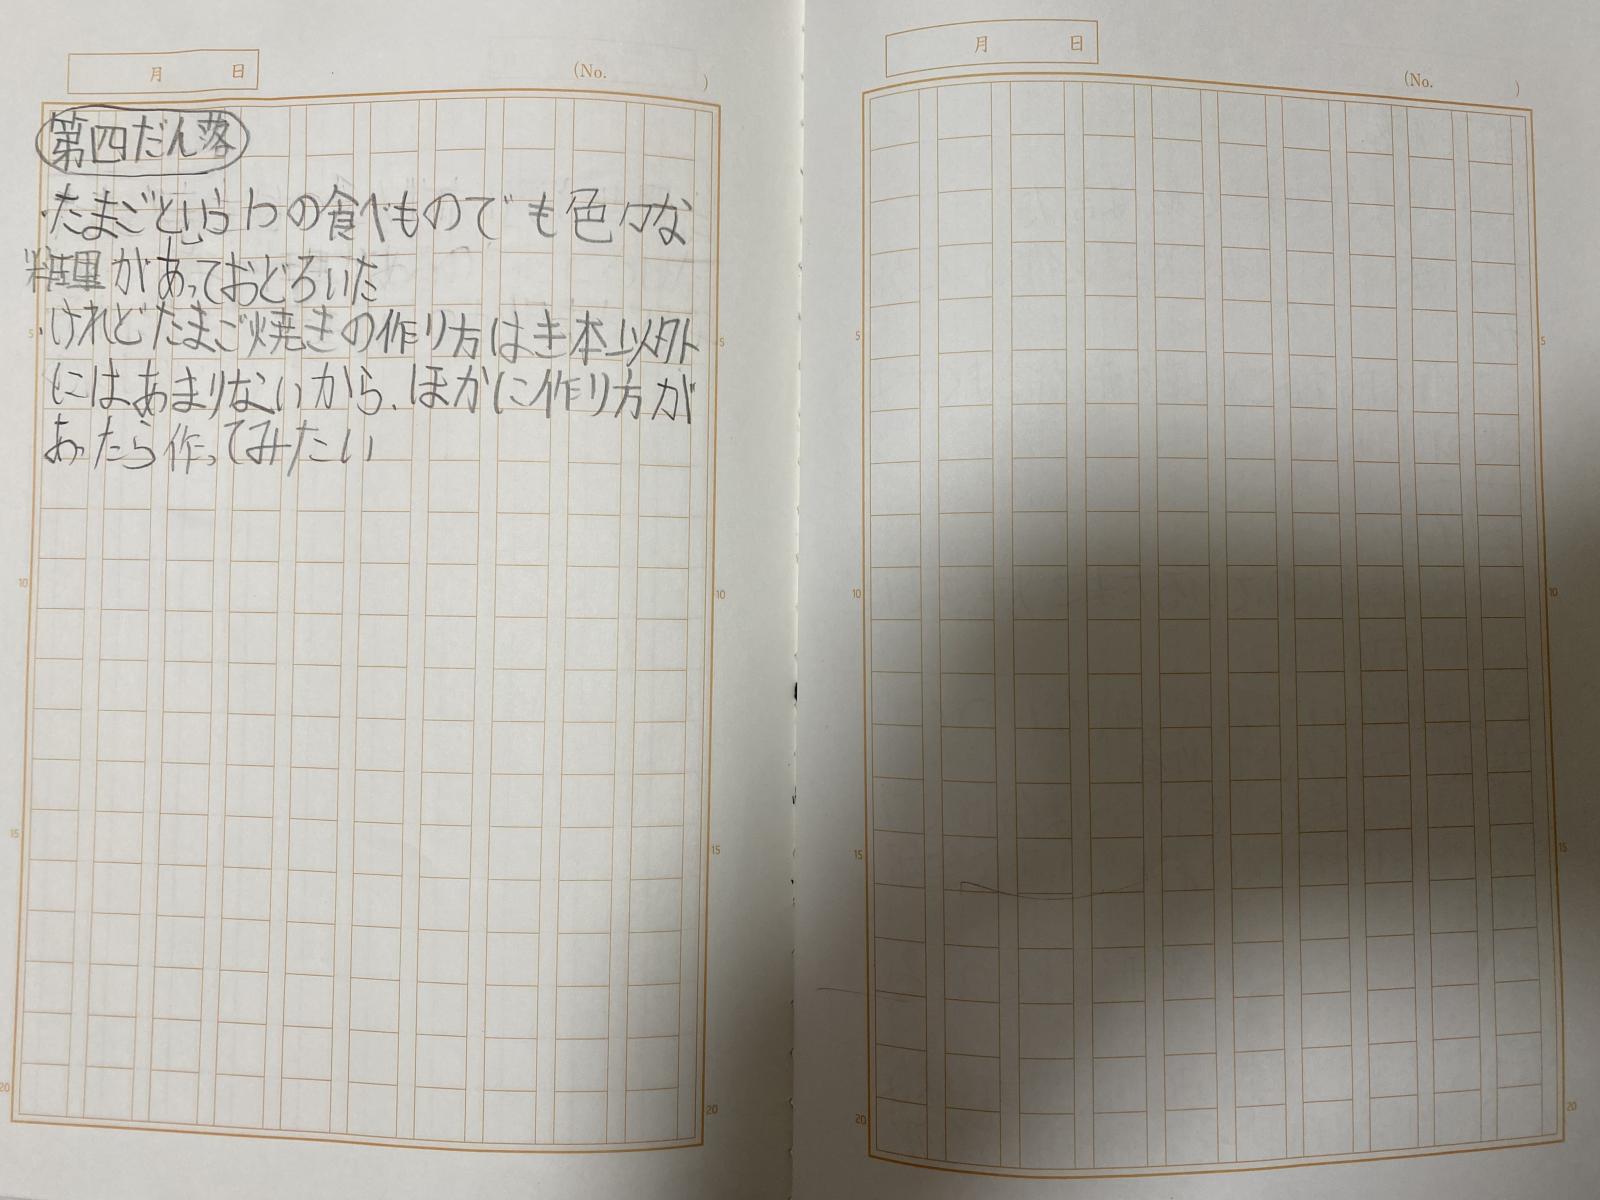 月 日
(No. )
第四だん落
・たまごという1つの食べものでも色々な
料理があっておどろいた
・けれどたまご焼きの作り方はき本以外
にはあまりないから、ほかに作り方が
あったら作ってみたい
5
10
15
20
5
10
15
20
月 日
(No. )
5
10
15
20
5
10
15
20